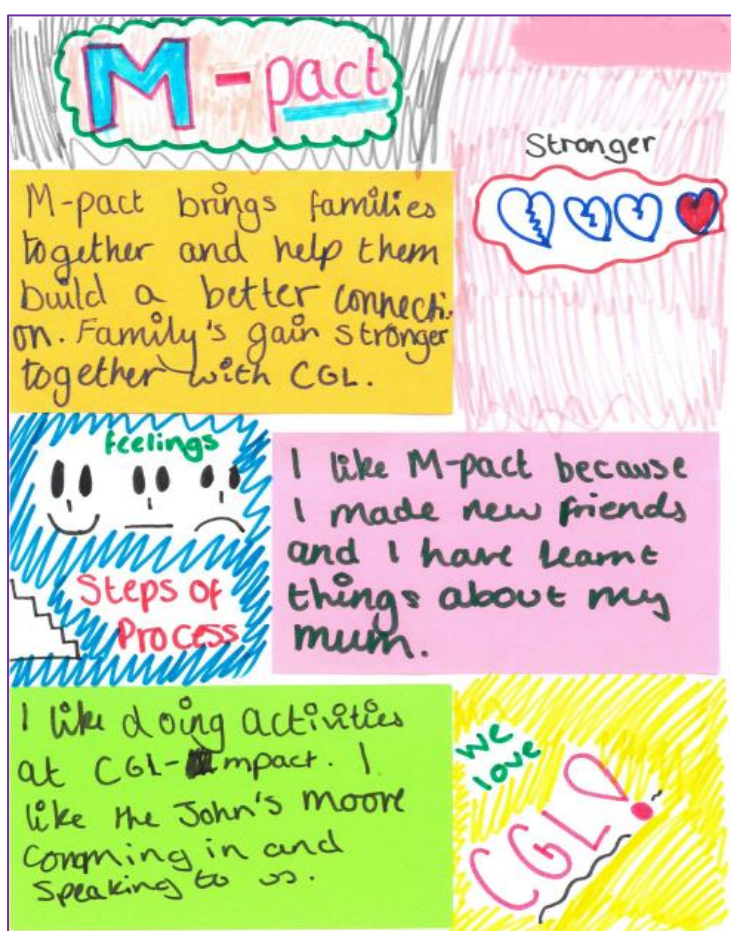 M-pact
Stronger
M-pact brings families
together and help them
build a better connecti-
on. Family's gain stronger
together with CGL.
feelings
Steps of
Process
I like M-pact because
I made new friends
and I have learnt
things about my
mum.
I like doing activities
at CGL-mpact. I
like the John's Moore
comming in and
speaking to us.
we
love
CGL!